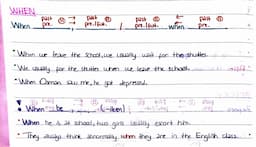 WHEN
past past past past
When pre. , pre./fut. / pre./fut. when pre.
• When we leave the school, we usually wait for the shutter.
• We usually for the shutter when we leave the school.
• When Osman saw me, he got depressed.
When be
• When he is at school, two girls usually escort him.
• They usually think abnormally when they are in the English class.